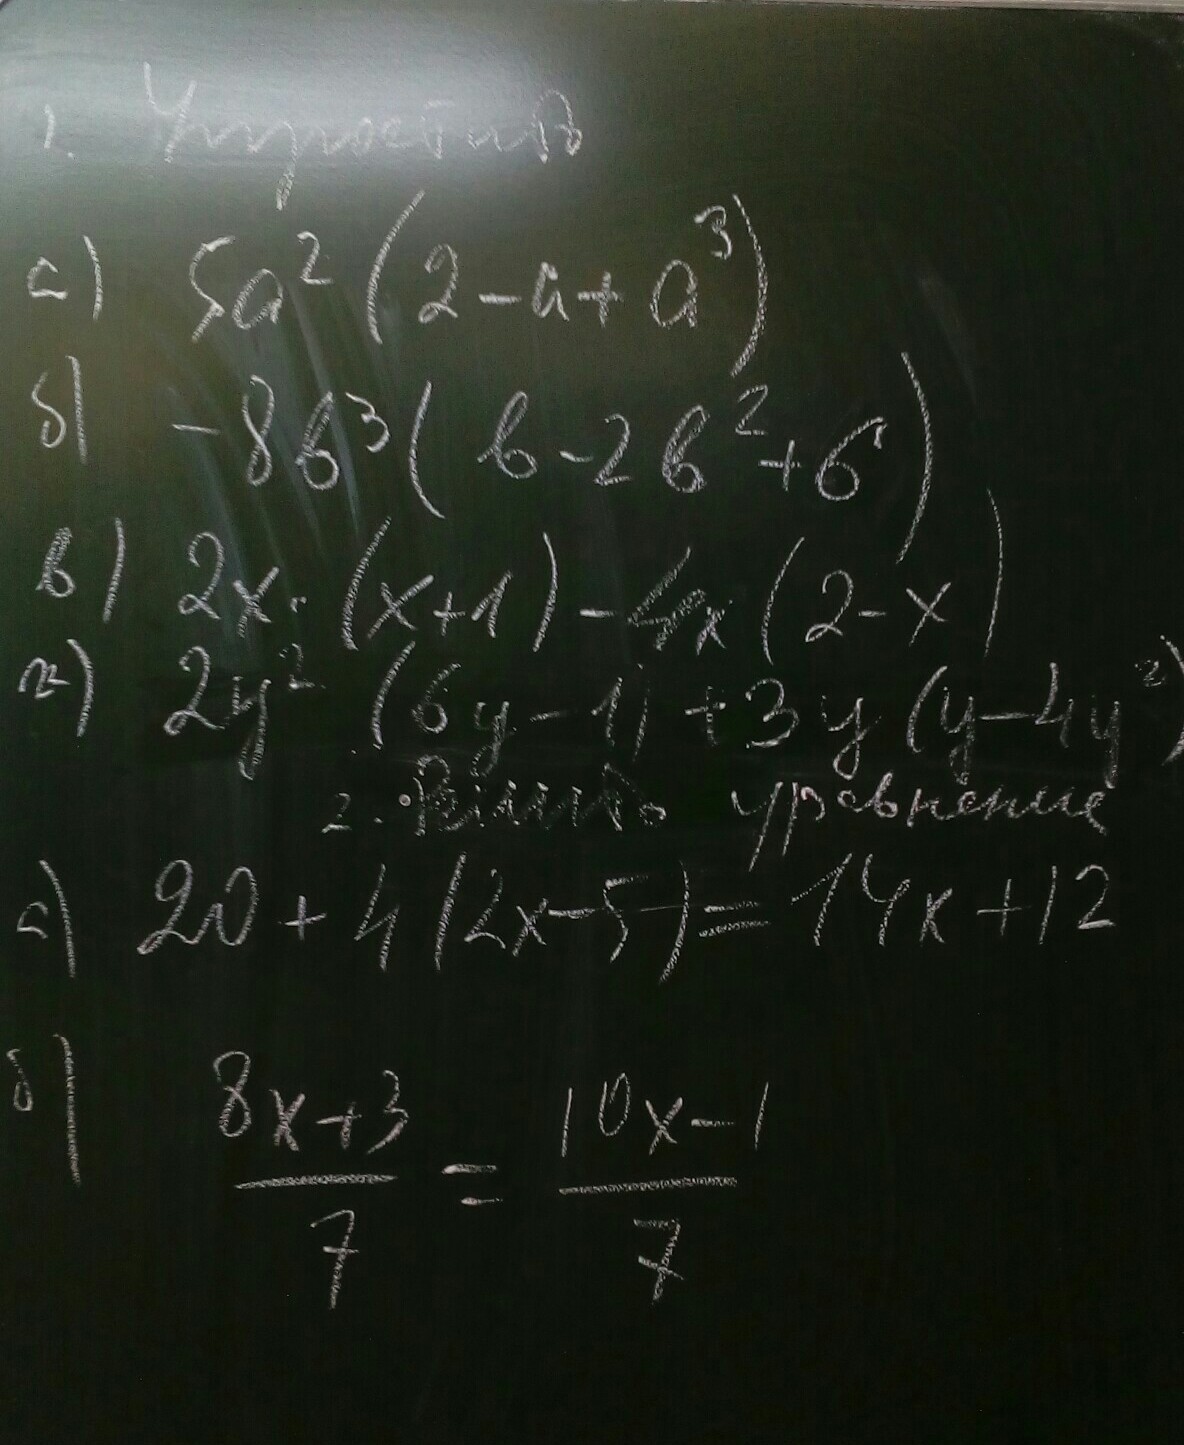 1. Упростить
а) 5a² (2-a+a³)
б) -8b³( b-2b²+6)
в) 2x·(x+1)-4x(2-x)
г) 2y² (6y-1)+3y(y-4y²)
2. Решить уравнение
а) 20+4(2x-5)=14x+12
б) 8x+3 = 10x-1
7 7